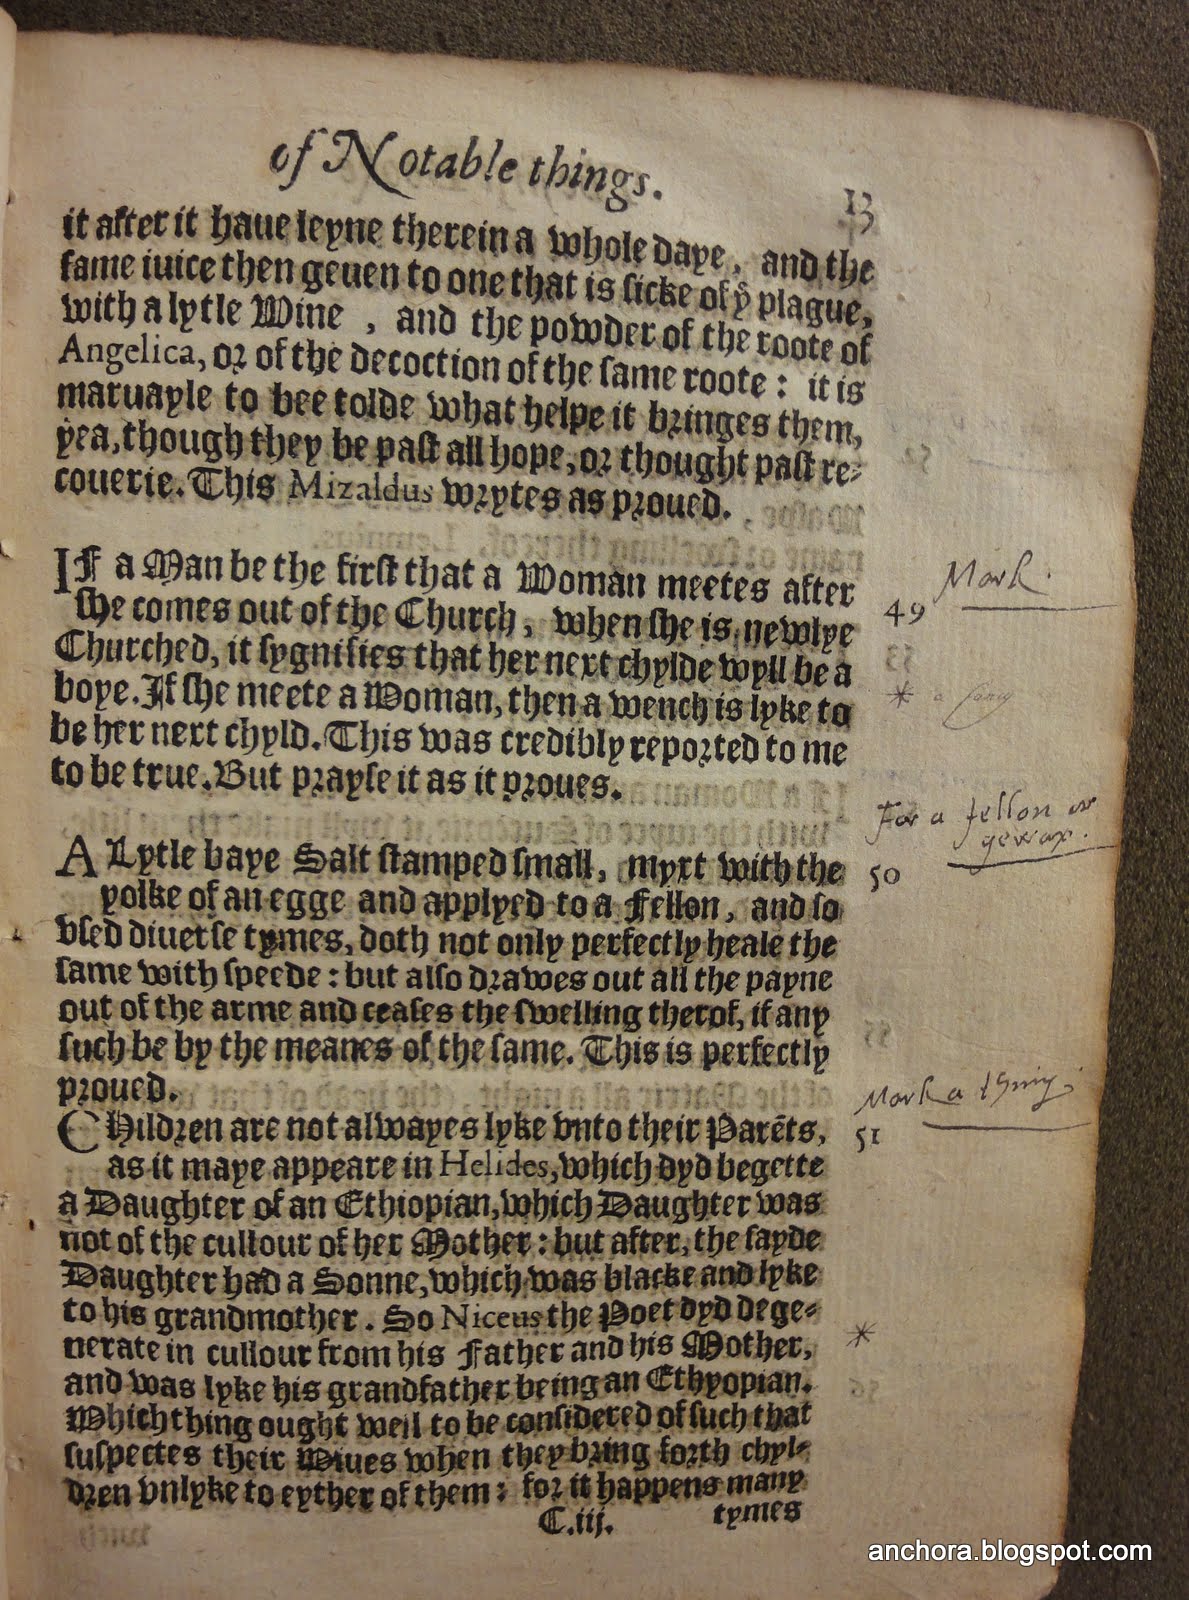 of Notable things.
13
it after it haue leyne therein a whole daye, and the
same iuice then geuen to one that is sicke of yͤ plague,
with a lytle Wine , and the powder of the roote of
Angelica, or of the decoction of the same roote: it is
maruayle to bee tolde what helpe it bringes them,
yea, though they be past all hope, or thought past re-
couerie. This Mizaldus wrytes as proued.
Mark.
IF a Man be the first that a Woman meetes after
49
she comes out of the Church, when she is newlye
Churched, it sygnifies that her next chylde wyll be a
* a
boye. If she meete a Woman, then a wench is lyke to
be her next chyld. This was credibly reported to me
to be true. But prayse it as it proues.
For a fellon or
A Lytle baye Salt stamped small, myxt with the
50
yolke of an egge and applyed to a Fellon, and so
vsed diuerse tymes, doth not only perfectly heale the
same with speede: but also drawes out all the payne
out of the arme and ceases the swelling therof, if any
such be by the meanes of the same. This is perfectly
proued.
Mark a thing
CHildren are not alwayes lyke vnto their Parẽts,
51
as it maye appeare in Helides, which dyd begette
a Daughter of an Ethiopian, which Daughter was
not of the cullour of her Mother: but after, the sayde
Daughter had a Sonne, which was blacke and lyke
to his grandmother. So Niceus the Poet dyd dege-
nerate in cullour from his Father and his Mother,
*
and was lyke his grandfather being an Ethyopian.
Which thing ought well to be considered of such that
suspectes their Wiues when they bring forth chyl-
dren vnlyke to eyther of them: for it happens many
C.iij.
tymes
anchora.blogspot.com